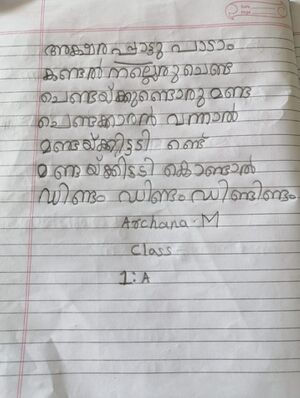 അക്ഷര പ്പാട്ടു പാടാം
കണ്ടൽ നല്ലൊരു ചെണ്ട
ചെണ്ടയ്ക്കുണ്ടൊരു മണ്ട
ചെണ്ടക്കാരൻ വന്നാൽ
മണ്ടയ്ക്കിട്ടടി രണ്ട്
മണ്ടയ്ക്കിട്ടടി കൊണ്ടാൽ
ഡിണ്ടം ഡിണ്ടം ഡിണ്ടിണ്ടം
Archana - M
Class
1:A